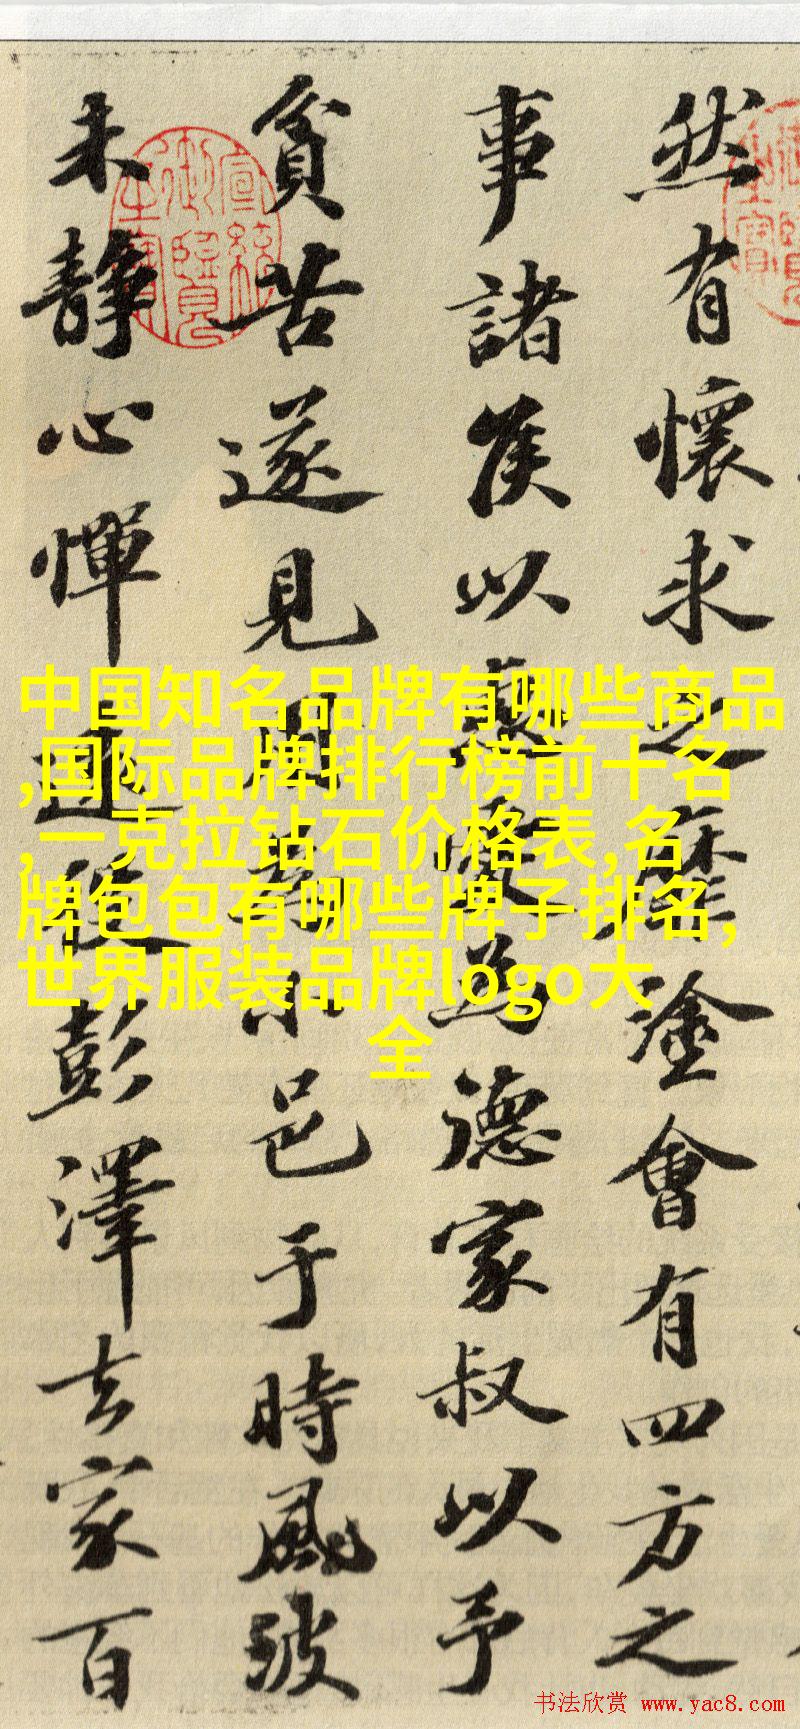 然有懷求之靡塗會有四方之
事諸侯以惠愛為德家叔以予
貧苦遂見用於小邑于時風波
未静心惮遠役彭澤去家百
中国知名品牌有哪些商品
,国际品牌排行榜前十名
,一克拉钻石价格表,名
牌包包有哪些牌子排名,
世界服装品牌logo大
全
宣統御覽之寶
书法欣赏 www.yac8.com